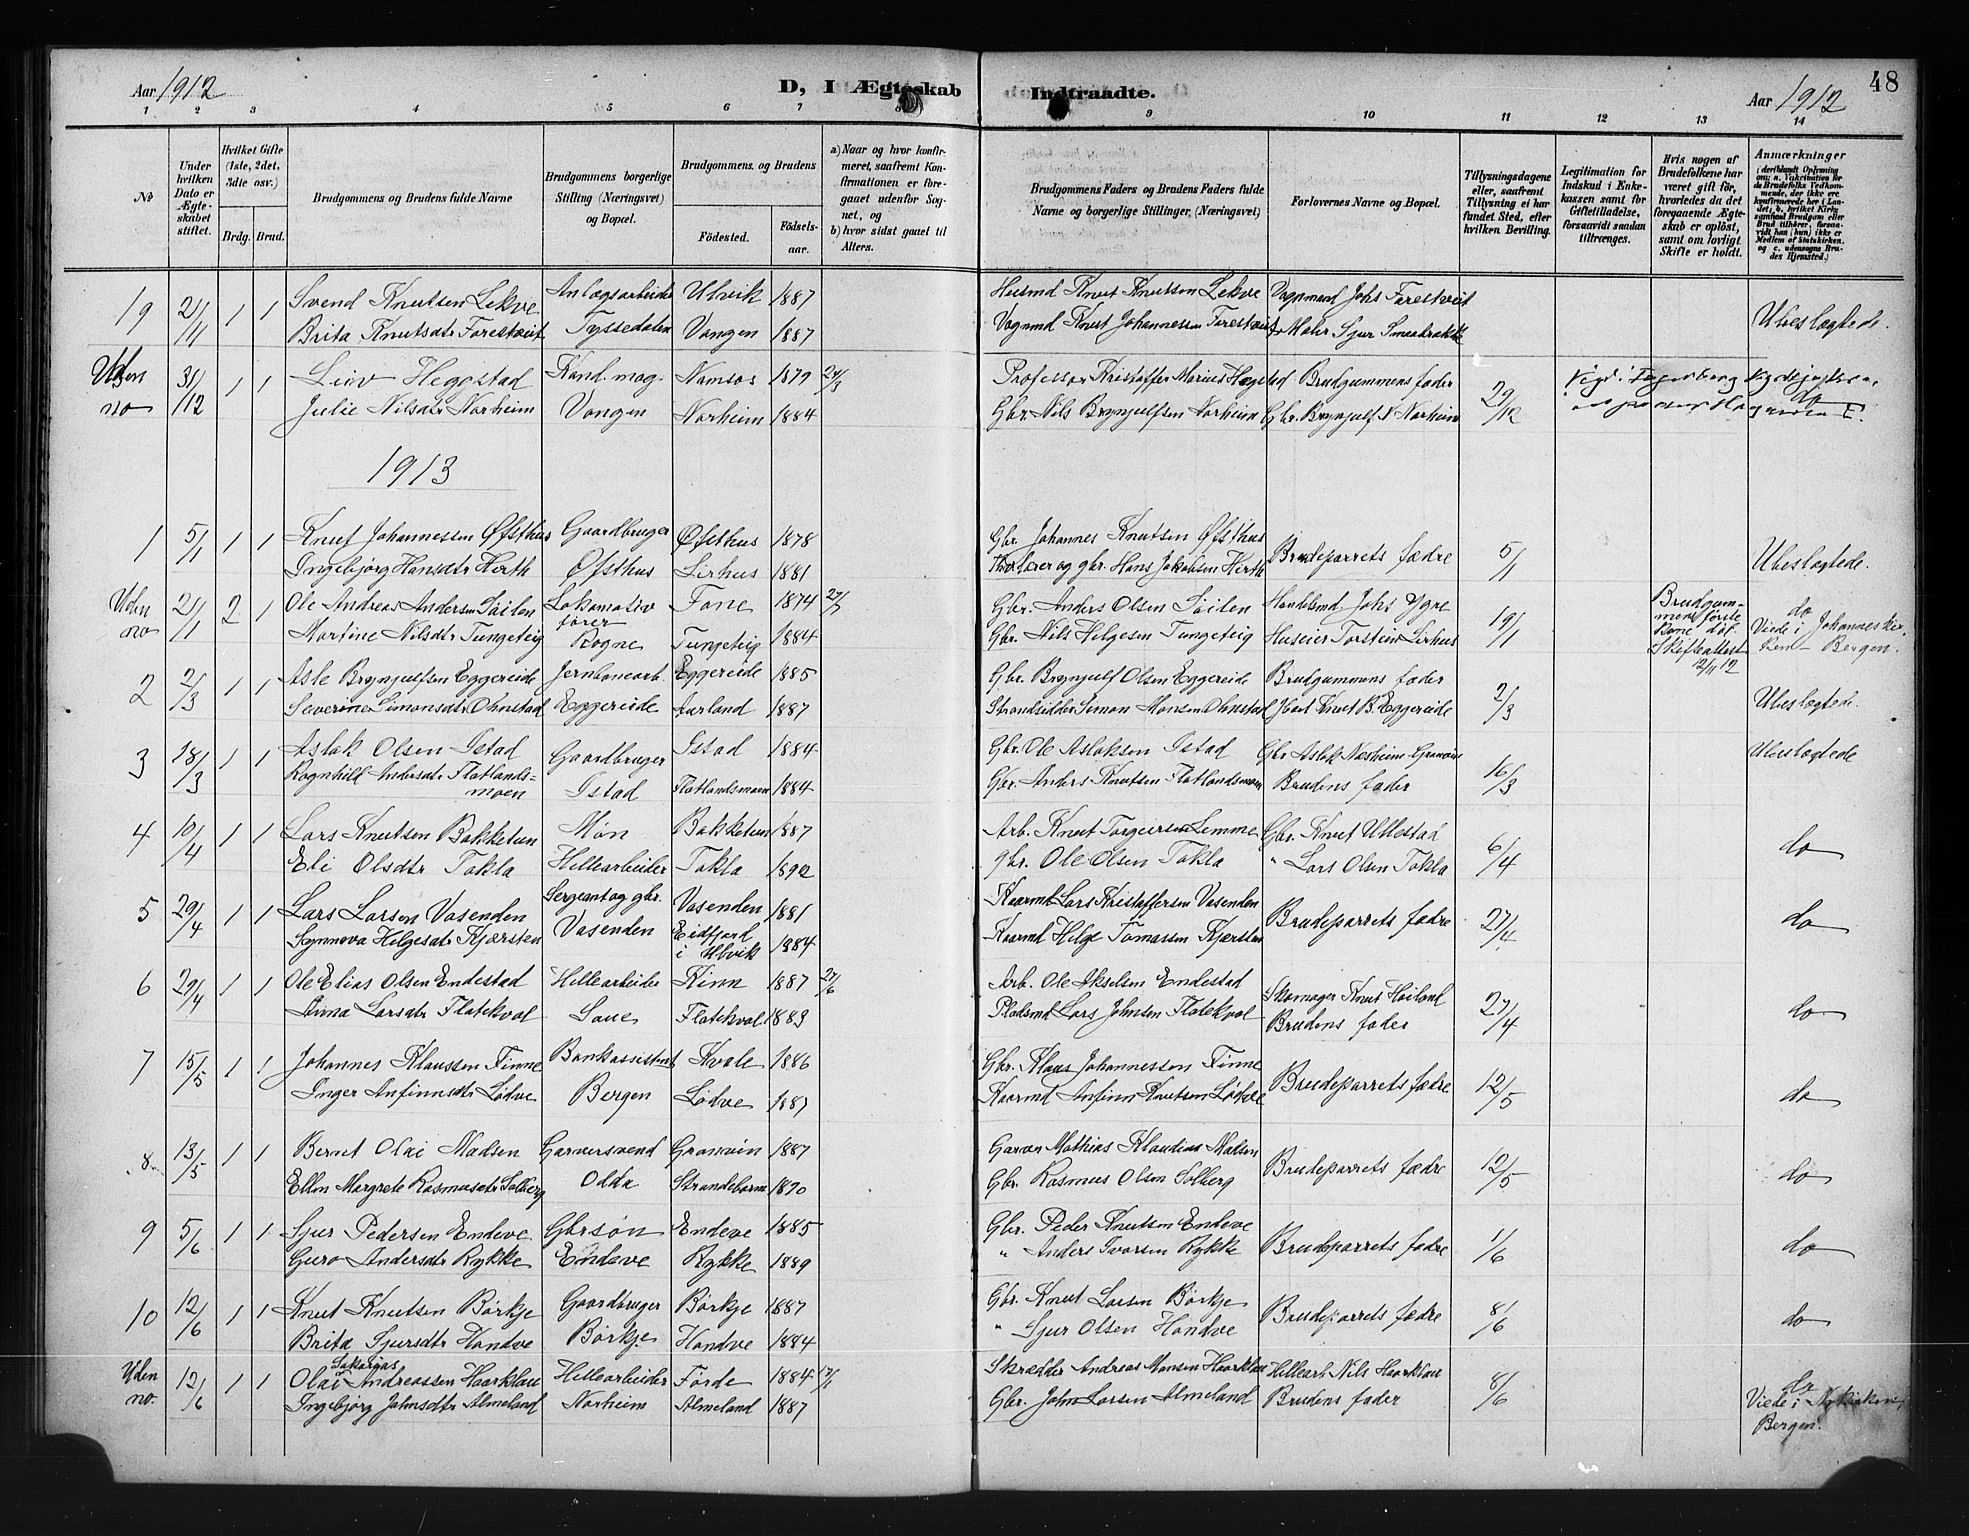 Aar 1912
D, I Ægteskab Indtraadte.
Aar 1912
48
1 2 3 4 5 6 7 8 9 10 11 12 13 14
No
Under hvilken Dato er Ægteskabet stiftet.
Hvilket Gifte (1ste, 2det, 3die osv.)
Brdg. Brud.
Brudgommens og Brudens fulde Navne
Brudgommens borgerlige Stilling (Næringsvei) og Bopæl.
Brudgommens og Brudens
Födested. Födselsaar.
a) Naar og hvor konfirmeret, saafremt Konfirmationen er foregaaet udenfor Sognet, og
b) hvor sidst gaaet til Alters.
Brudgommens Faders og Brudens Faders fulde Navne og borgerlige Stillinger, (Næringsvei)
Forlovernes Navne og Bopæl.
Tillysningsdagene eller, saafremt Tillysning ei har fundet Sted, efter hvilken Bevilling.
Legitimation for Indskud i Enkekassen samt for Giftetilladelse, forsaavidt saadan tiltrænges.
Hvis nogen af Brudefolkene har været gift för, hvorledes da det foregaaende Ægteskab er oplöst, samt om lovligt Skifte er holdt.
Anmærkninger
19 21/11 1 1 Svend Knutsen Lekve Anlægsarbeider Ulvik 1887 Husmd Knut Knutsen Lekve Vognmand Johs Førestveit Ubeslægtede.
Brita Knutsdtr Førestveit Tyssedalen Vangen 1887 Vognmd Knut Johannessen Førestveit Maler Sjur Smedbrække
Uden no 31/12 1 1 Leiv Heggstad Kand. mag. Namsos 1879 24/3 Professor Kristoffer Marius Hægstad Brudgummens fader 29/12
Julie Nilsdtr Norheim Vangen Norheim 1884 Gbr. Nils Brynjulfsen Norheim Gbr. Brynjulf N Norheim
1913
1 5/1 1 1 Knut Johannessen Øfsthus Gaardbruger Øfsthus 1878 Gbr Johannes Knutsen Øfsthus Brudeparrets fædre 5/1 Ubeslægtede.
Ingebjørg Hansdtr Herth Øfsthus Lirhus 1881 og gbr. Hans Jakobsen Herth
Uden no 21/1 2 1 Ole Andreas Andersen Løilen Lokomotivfører Fane 1874 27/7 Gbr. Anders Olsen Løilen Handelsmd Johs Ygre 19/1 Brudgummens første Kone død. Skifteattest 12/11 12 do Viede i Johanneskirken - Bergen.
Martine Nilsdtr Tungeteig Rogne Tungeteig 1884 Gbr. Nils Helgesen Tungeteig Huseier Torstein Lirhus
2 2/3 1 1 Asle Brynjulfsen Eggereide Jernbanearb. Eggereide 1885 Gbr. Brynjulf Olsen Eggereide Brudgummens fader 2/3 Ubeslægtede.
Severine Simonsdtr Ohnstad Eggereide Aurland 1887 Strandsidder Simon Hansen Ohnstad Knut B. Eggereide
3 18/3 1 1 Aslak Olsen Istad Gaardbruger Istad 1884 Gbr. Ole Aslaksen Istad Gbr Aslak Nesheim Granvin 16/3 Ubeslægtede
Ragnhild Andersdtr Flatlandsmoen Istad Flatlandsmoen 1884 Gbr. Anders Knutsen Flatlandsmoen Brudens fader
4 10/4 1 1 Lars Knutsen Bakketun Møn Bakketun 1887 Arb. Knut Torgeirsen Lemme Gbr. Knut Ullestad 6/4 do
Eli Olsdtr Takla Hellearbeider Takla 1892 gbr. Ole Olsen Takla " Lars Olsen Takla
5 29/4 1 1 Lars Larsen Vasenden Sergeant og gbr. Vasenden 1881 Kaarmd Lars Kristoffersen Vasenden Brudeparrets fædre 27/4 do
Synnøva Helgesdtr Kjærsten Vasenden Eidfjord i Ulvik 1884 Kaarmd Helge Tomassen Kjærsten
6 29/4 1 1 Ole Elias Olsen Endestad Hellearbeider Kinn 1887 27/6 Arb. Ole Akselsen Endestad Skomager Knut Høiland 27/4 do
Anna Larsdtr Flatekval Saue Flatekval 1883 Pladsmd Lars Johnsen Flatekval Brudens fader
7 15/5 1 1 Johannes Klaussen Finne Bankassistent Kvale 1886 Gbr. Klaus Johannessen Finne Brudeparrets fædre 12/5 do
Inger Anfinnsdtr Lødve Bergen Lødve 1887 Kaarmd Anfinn Knutsen Lødve
8. 13/5 1 1 Bernt Olai Madsen Garversvend Granvin 1887 Garver Mathias Klaudius Madsen Brudeparrets fædre 12/5 do
Ellen Margrete Rasmusdtr Solberg Odda Strandebarm 1890 Gbr. Rasmus Olsen Solberg
9 5/6 1 1 Sjur Pedersen Endeve Gbrsøn Endeve 1885 Gbr. Peder Knutsen Endeve Brudeparrets fædre 1/6 do
Guro Andersdtr Rykke Endeve Rykke 1889 " Anders Ivarsen Rykke
10 12/6 1 1 Knut Knutsen Børkje Gaardbruger Børkje 1887 Gbr. Knut Larsen Børkje Brudeparrets fædre 8/6 do
Brita Sjursdtr Handve Børkje. Handve 1884 " Sjur Olsen Handve
Uden no. 12/6 1 1 Olai Sakarias Andreassen Haarklau Hellearbeider Førde 1884 17/1 Skrædder Andreas Monsen Haarklau Hellearb. Nils Haarklau 8/6 do Viede i Nykirken, Bergen.
Ingebjørg Johnsdtr Almeland Norheim Almeland 1887 Gbr. John Larsen Almeland Brudens fader